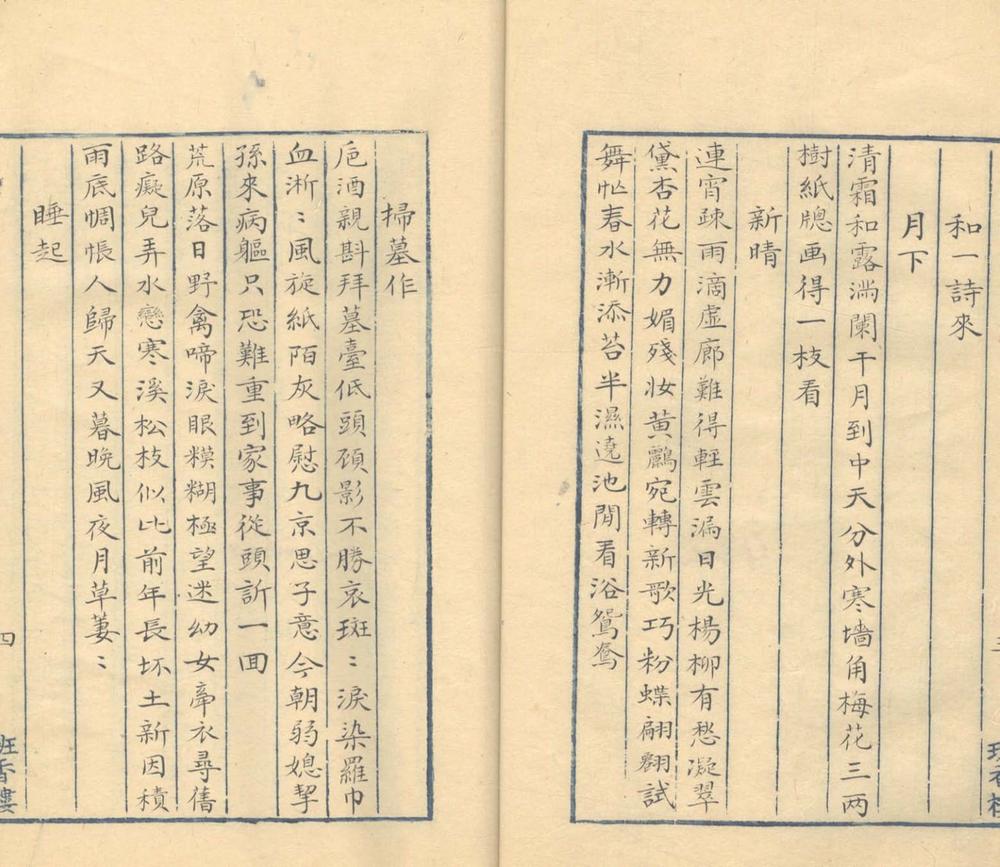 和一詩來
月下
清霜和露滿闌干月到中天分外寒墻角梅花三两
樹紙牕画得一枝看
新晴
連宵疎雨滴虛廊難得輕雲漏日光楊柳有愁凝翠
黛杏花無力媚殘妝黄鸝宛轉新歌巧粉蝶翩翻試
舞忙春水漸添苔半濕遶池閒看浴鴛鴦
掃墓作
巵酒親斟拜墓臺低頭顧影不勝哀斑〻淚染羅巾
血淅〻風旋紙陌灰略慰九京思子意今朝弱媳挈
孫來病軀只恐難重到家事從頭訴一囬
荒原落日野禽啼淚眼糢糊極望迷幼女牽衣尋舊
路癡兒弄水戀寒溪松枝似比前年長坏土新因積
雨底惆悵人歸天又暮晚風夜月草萋〻
睡起
四
班香樓